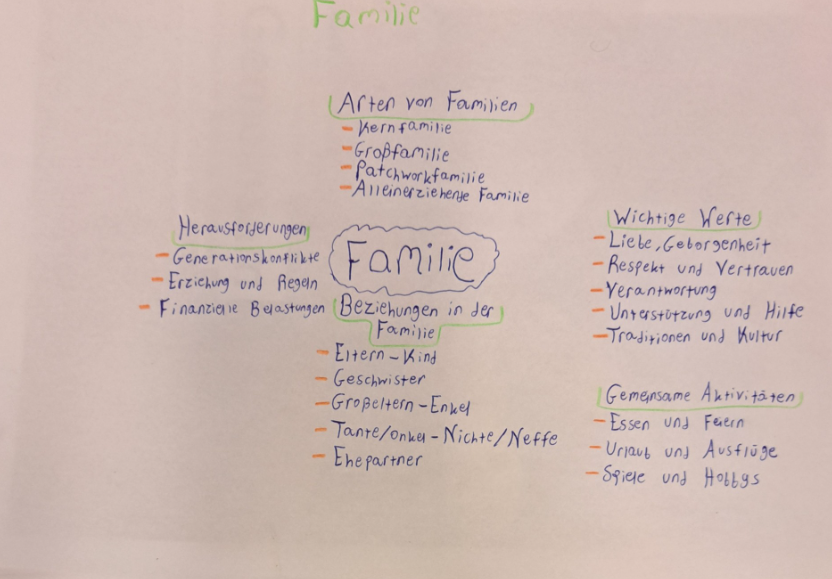 Familie
Arten von Familien
- Kernfamilie
- Großfamilie
- Patchworkfamilie
- Alleinerziehende Familie
Herausforderungen
- Generationskonflikte
- Erziehung und Regeln
- Finanzielle Belastungen
Familie
Beziehungen in der
Familie
- Eltern-Kind
- Geschwister
- Großeltern-Enkel
- Tante/Onkel-Nichte/Neffe
- Ehepartner
Wichtige Werte
- Liebe, Geborgenheit
- Respekt und Vertrauen
- Verantwortung
- Unterstützung und Hilfe
- Traditionen und Kultur
Gemeinsame Aktivitäten
- Essen und Feiern
- Urlaub und Ausflüge
- Spiele und Hobbys